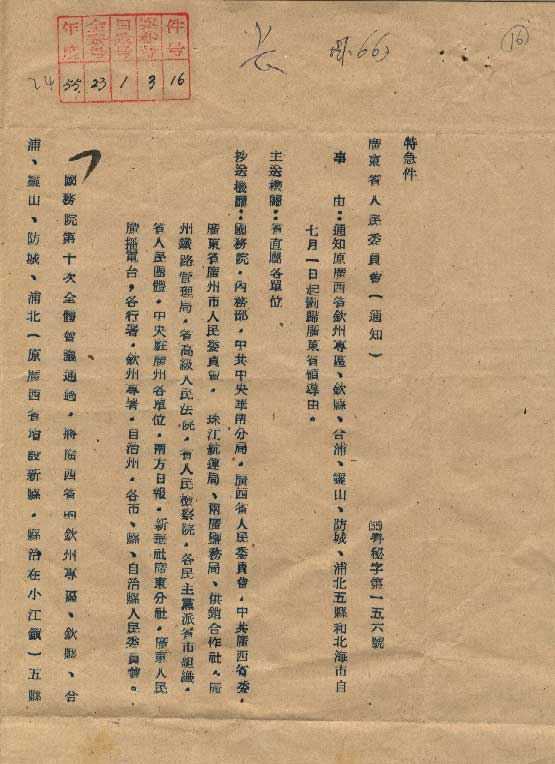 16
件号
案卷号
目录号
全宗号
年度
16
3
1
23
55.
24
663
特急件
廣東省人民委員會（通知）
(55)粤秘字第一五六號
事　由：通知原廣西省欽州專區、欽縣、合浦、靈山、防城、浦北五縣和北海市自
七月一日起劃歸廣東省領導由。
主送機關：省直屬各單位
抄送機關：國務院，內務部，中共中央華南分局，廣西省人民委員會，中共廣西省委，
廣東省廣州市人民委員會，珠江航運局、兩廣鹽務局、供銷合作社，廣
州鐵路管理局，省高級人民法院，省人民檢察院，各民主黨派省市組織，
省人民團體，中央駐廣州各單位，南方日報，新華社廣東分社，廣東人民
廣播電台，各行署，欽州專署，自治州，各市、縣、自治縣人民委員會。
國務院第十次全體會議通過，將廣西省的欽州專區、欽縣、合
浦、靈山、防城、浦北（原廣西省增設新縣，縣治在小江鎮）五縣